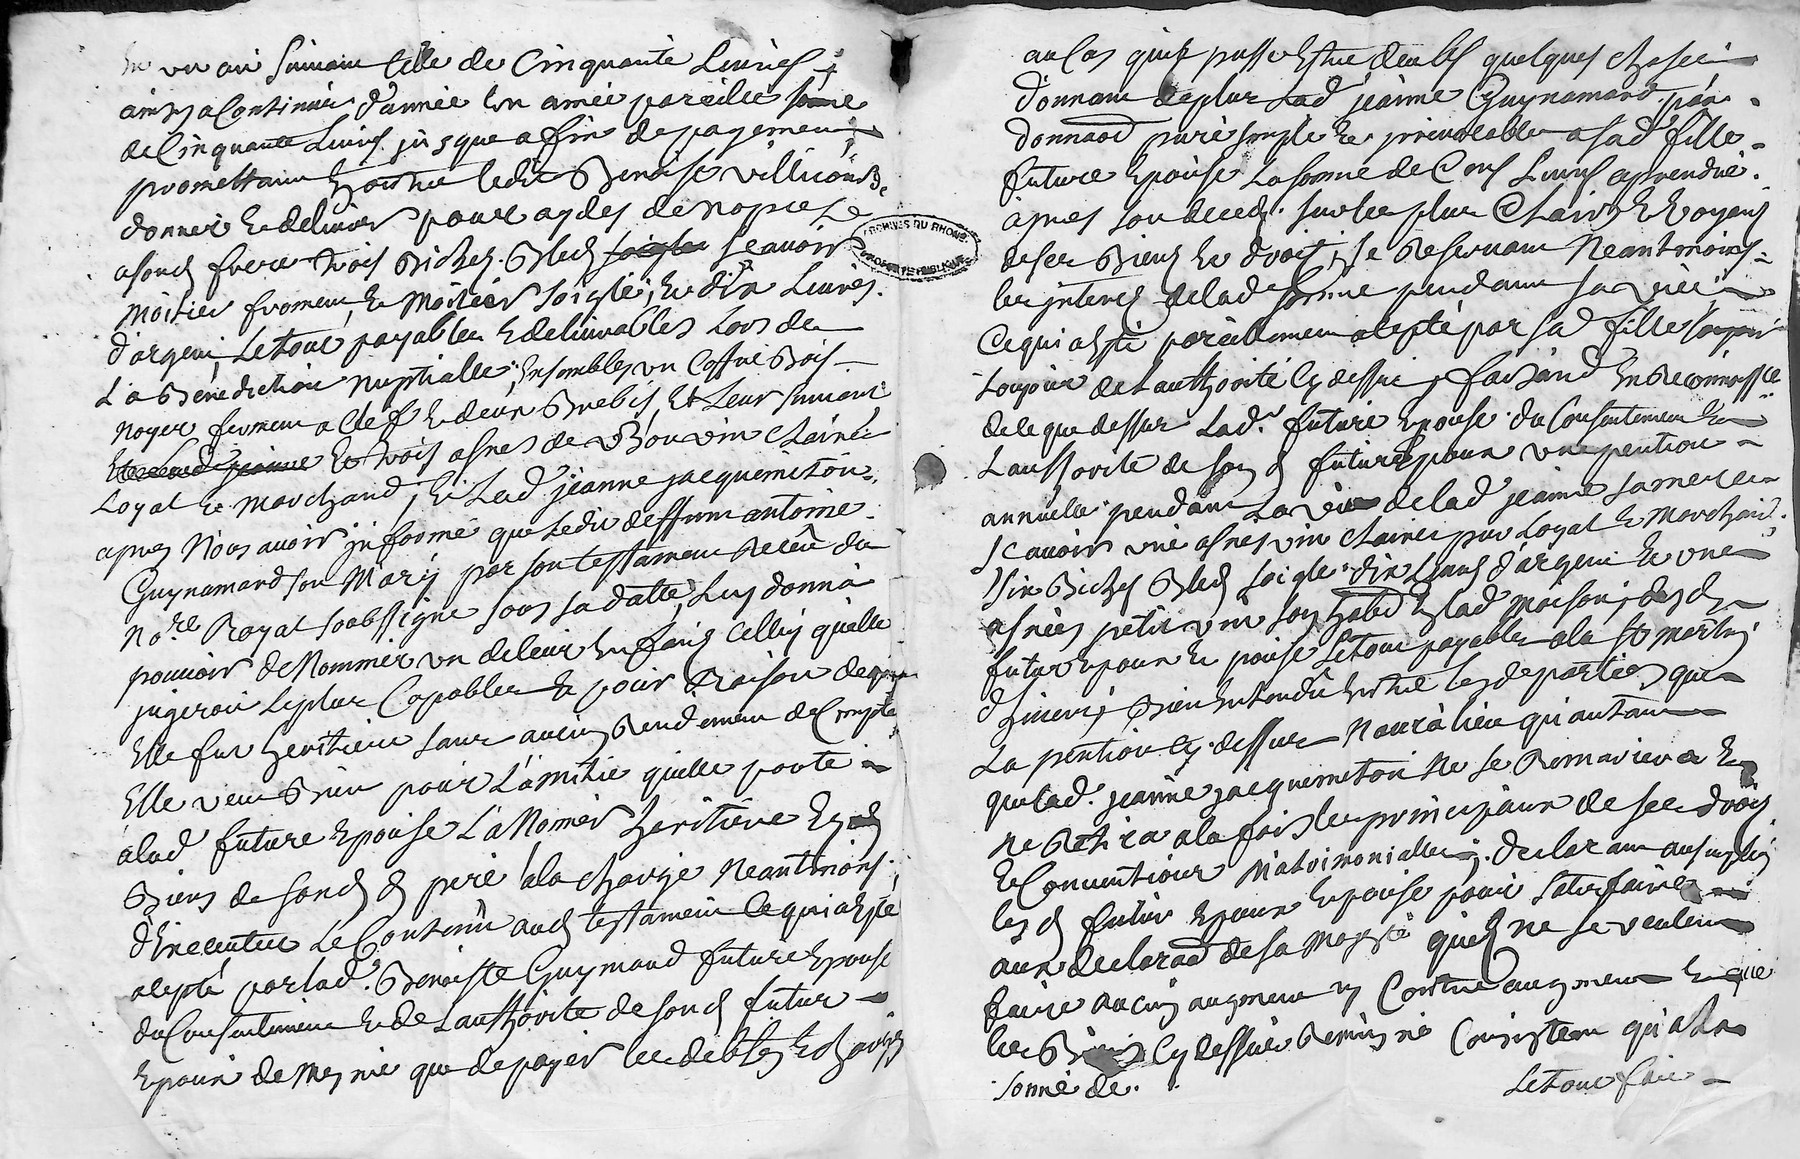 en un an suivant celle de Cinquante Livres
ainsy a Continuer d'année en année pareille somme
de Cinquante Livres jusque a fin de payement
promettant en outre ledit Benoist
donner et delivrer pour aydes de nopces
a sond frere trois Bichez Bled soigle sçavoir
Moitier froment et Moitier soigle, et dix Livres
d'argent, Le tout payables et delivrables Lors de
La Benediction nuptialle, Ensembles un Coffre Bois
noyer fermant a Clef et deux Brebis, et Leur suivant
et trois asnés de Bon vin Clairée
Loyal et Marchand, et Lad jeanne jacquemeton
apres Nous avoir informé que Ledit deffunt antoine
Guynamard son Mary par son testament Receu du
No.re Royal soubssigné sous sa datte, Luy donna
pouvoir de Nommer un de leur Enfans Celluy quelle
jugeroit Le plus Capables et pour Raison de quoy
Elle fut heritiere sans aucun Rendement de Compte
Elle veut Bien pour L'amitié quelle porte
a lad future Epouse La Nomer heritiere Es
Biens de sond d pere a la Charge Neantmoins
d'Executer Le Contenu aud testament Ce qui a Esté
alepté par lad. Benoiste Guymard future Epouse
du Consentement et de Lauthorité de sond futur
Epoux de Mesme que de payer les debtes et Charges
au Cas qu'il puisse Estre deubs quelques choses
donnant de plus Lad jeanne Guynamard par
donnaon pure simple et irrevocable a sad fille
future Epouse La somme de Cens Livres a prendre
apres son deceds sur les plus Clairs et Loyaux
de ses Biens et droits, se Reservant Neantmoins
les interes de lad somme pendant sa vie
Ce qui a Esté pareillement alepté par sad fille
toujour de Lauthorité Cy dessus, faisand En Reconnoissce
de Ce que dessus Lad. future Epouse du Consentement et
Lauthorité de son d futur Epoux une pention
annuelle pendant La vie de lad jeanne sa mere
sçavoir une asnes vin Clairée pur Loyal et Marchand
six Bichez Bled soigle dix Livres d'argent et une
asnées petit vin son habd En lad Maison, desd
futur Epoux et Epouse Le tout payables a la St Martin
d'hivert, Bien Entendu Entre Lesd parties que
La pention Cy dessus Naura lieu qu'autant
que Lad. jeanne jacquemeton Ne se Remariera et
ne Retira a la fois Les principaux de ses droits
et Conventions Matrimonialles, declarant au surplus
les d futur Epoux Epouse pour satisfaire
aux declaraon de sa Majesté quils ne se veulent
faire aucun augment ny Contre augment et que
les Biens Cy dessus Consistent qu'a La
somme de
Le tout fait